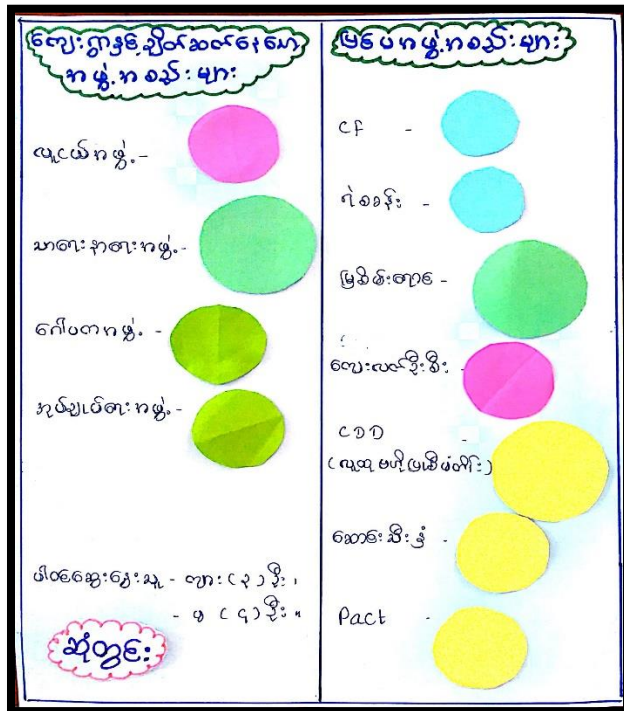 ကျေးရွာနှင့်ချိတ်ဆက်နေသော
အဖွဲ့အစည်းများ
လူငယ်အဖွဲ့ -
သာရေးနာရေးအဖွဲ့ -
ဂေါပကအဖွဲ့ -
အုပ်ချုပ်ရေးအဖွဲ့ -
ပါဝင်ဆွေးနွေးသူ - ကျား (၃) ဦး ၊
- မ ( ၄ ) ဦး ။
ဆုံတွင်း
မြပေအဖွဲ့အစည်းများ
CF -
ရဲစခန်း -
မြစိမ်းရောင် -
ကျေးလက်ဦးစီး -
CDD -
(လူထုဗဟိုပြုစီမံကိန်း)
Pact -